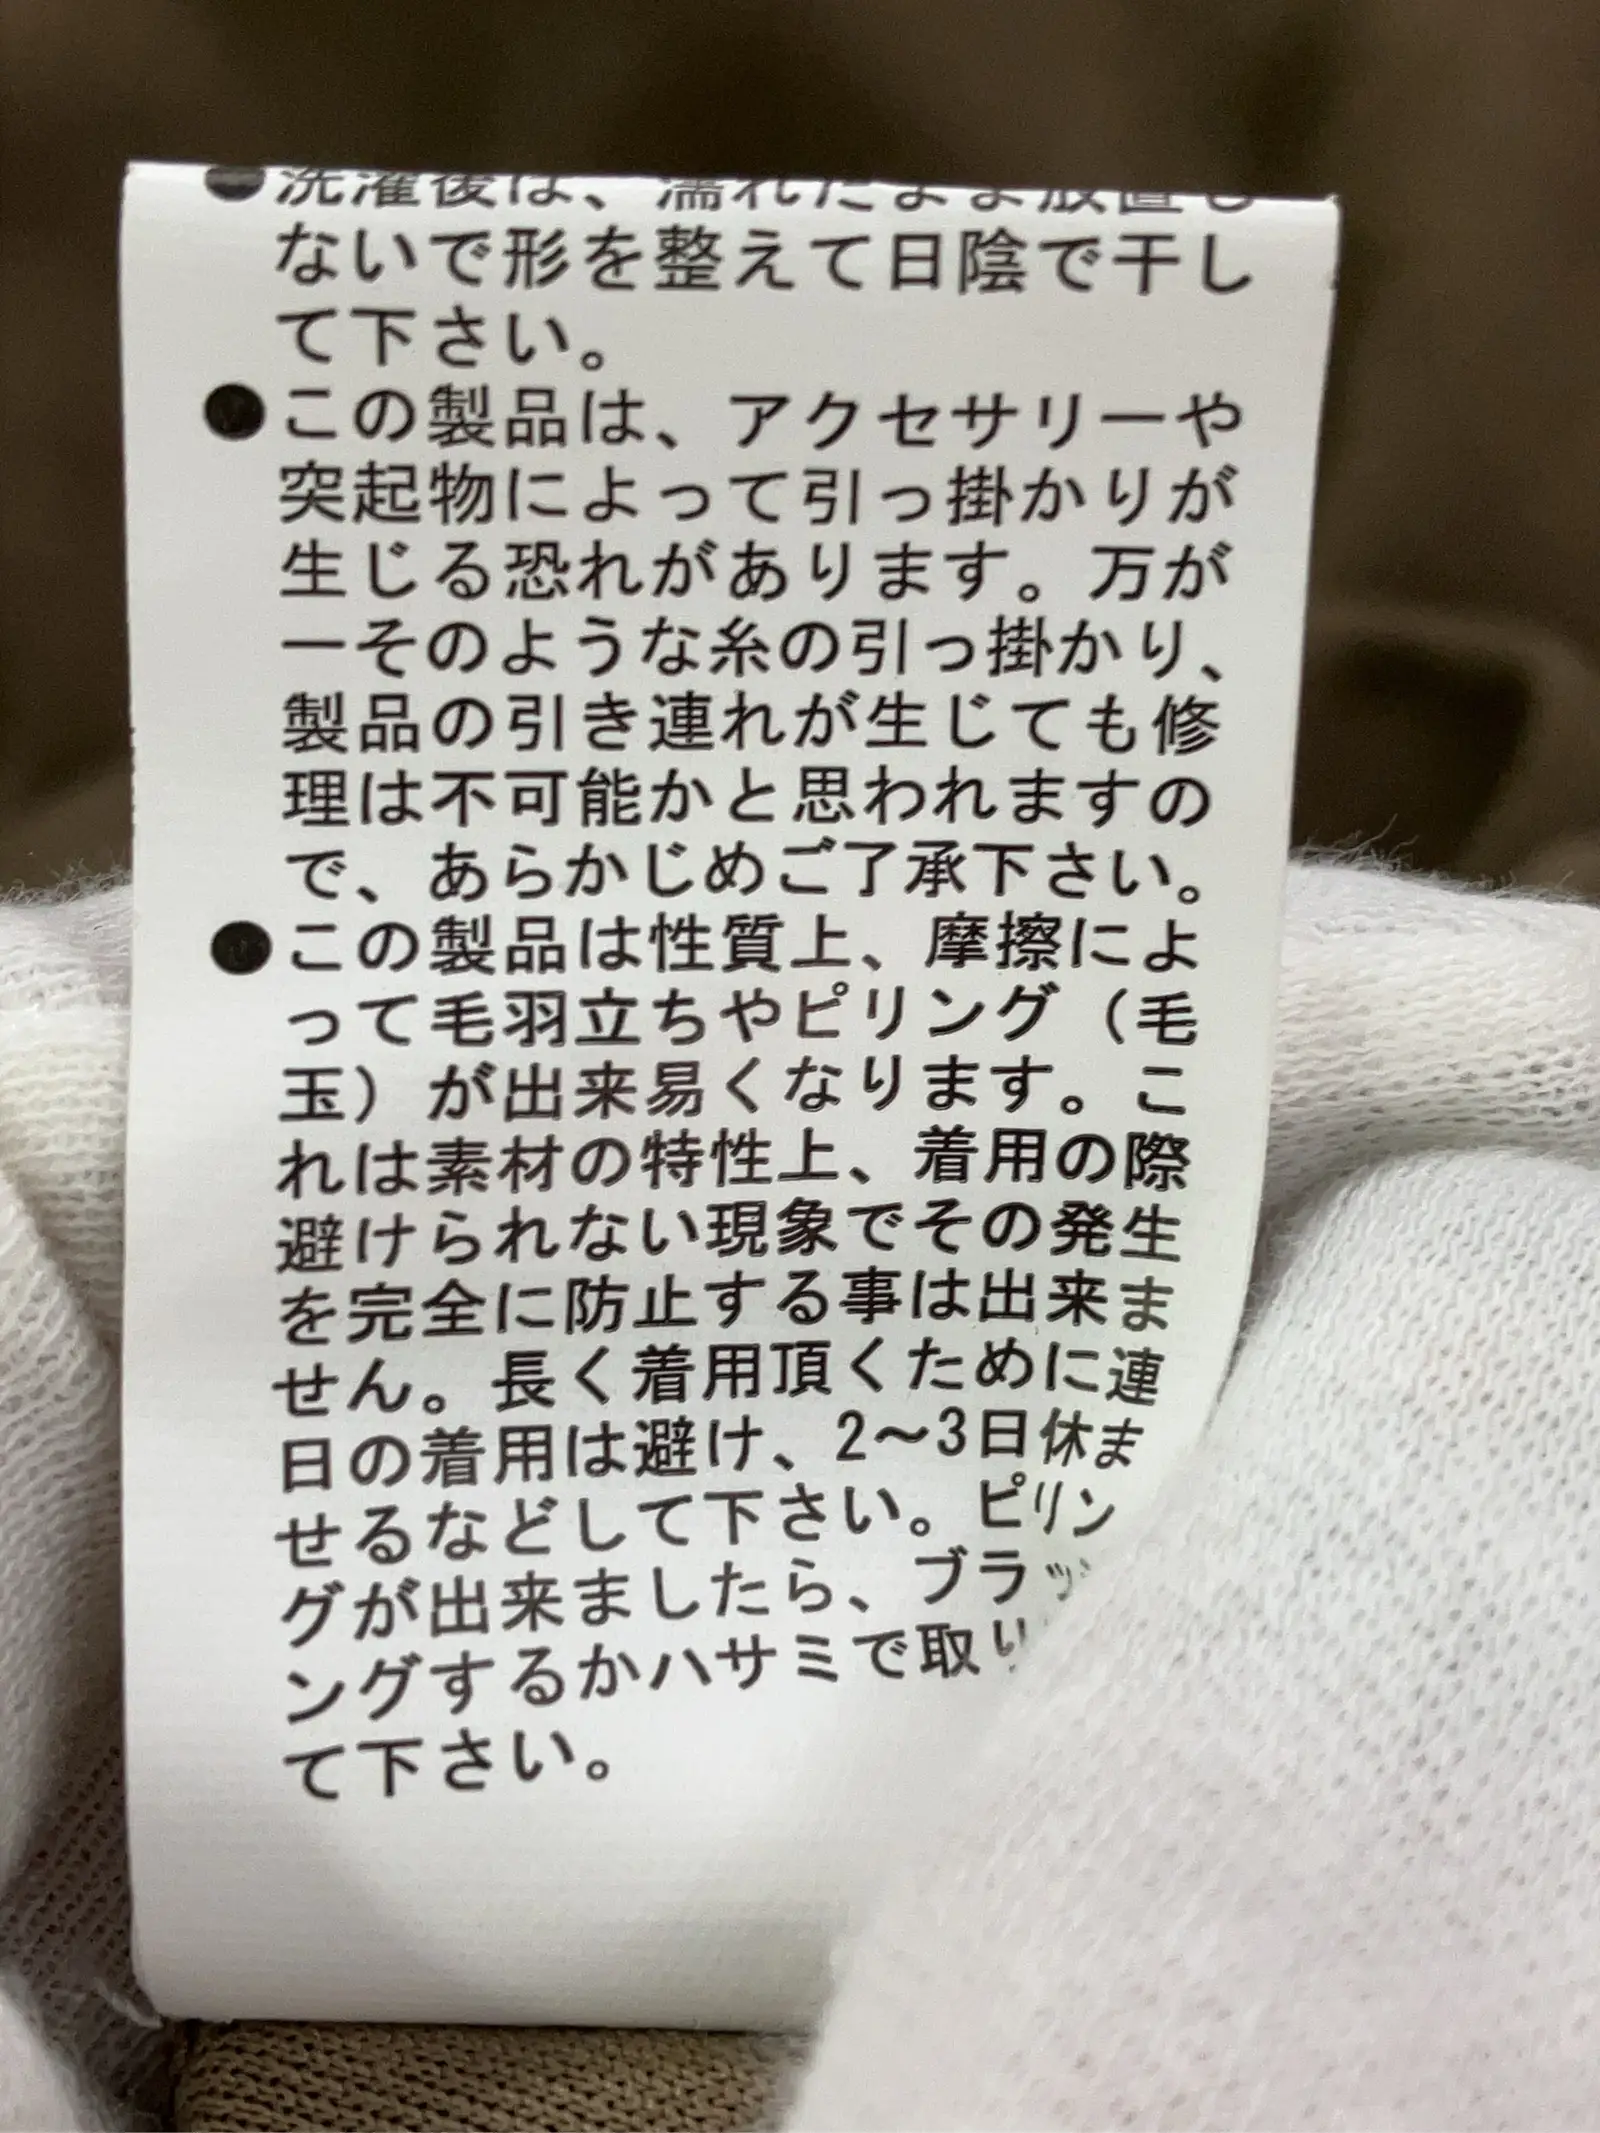 ●洗濯後は、濡れたまま放置し
ないで形を整えて日陰で干し
て下さい。
●この製品は、アクセサリーや
突起物によって引っ掛かりが
生じる恐れがあります。万が
一そのような糸の引っ掛かり、
製品の引き連れが生じても修
理は不可能かと思われますの
で、あらかじめご了承下さい。
●この製品は性質上、摩擦によ
って毛羽立ちやピリング（毛
玉）が出来易くなります。こ
れは素材の特性上、着用の際
避けられない現象でその発生
を完全に防止する事は出来ま
せん。長く着用頂くために連
日の着用は避け、2〜3日休ま
せるなどして下さい。ピリン
グが出来ましたら、ブラッ
ングするかハサミで取り
て下さい。